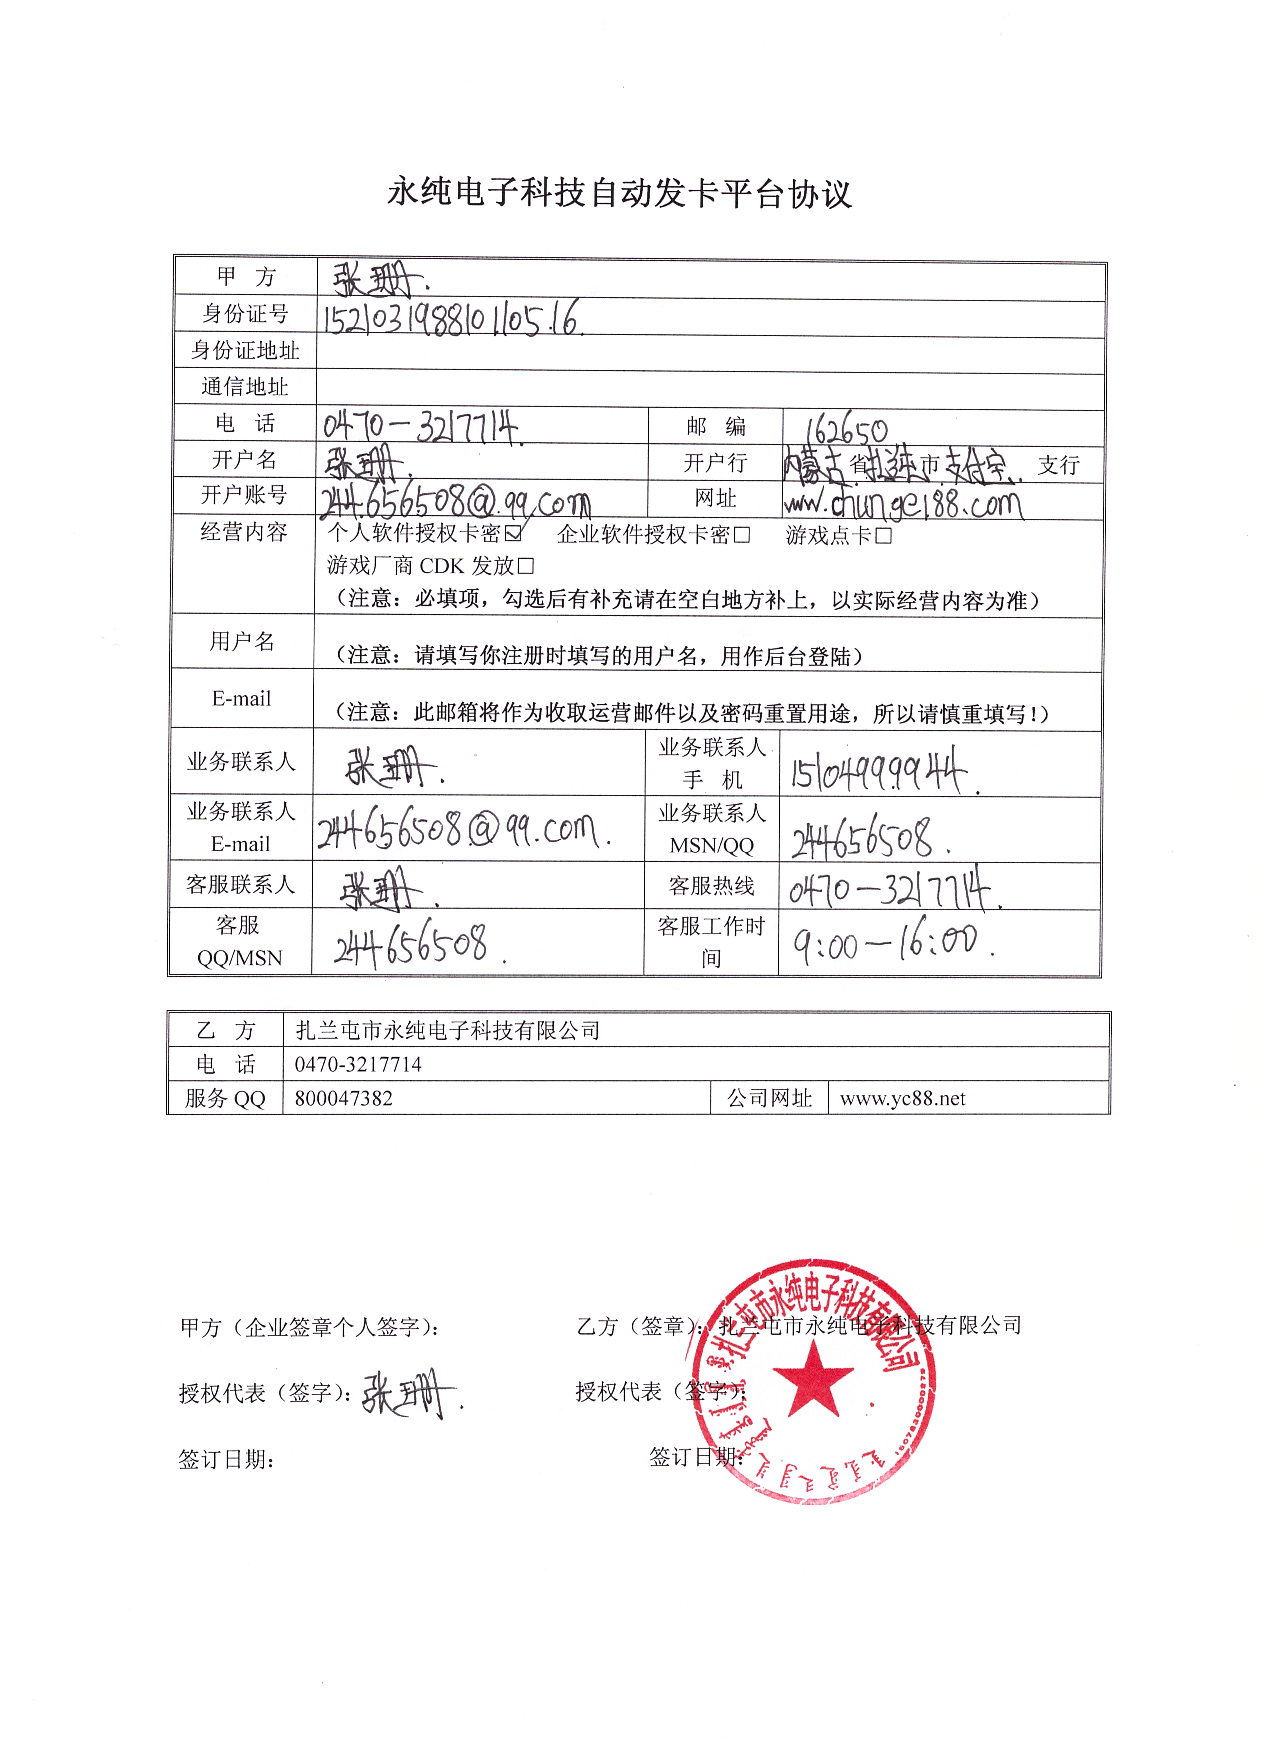 永纯电子科技自动发卡平台协议
甲 方 张珊.
身份证号 1521031988101105.16.
身份证地址
通信地址
电 话 0470-3217714. 邮 编 162650
开户名 张珊. 开户行 内蒙古省扎兰屯市支付宝. 支行
开户账号 244.656508@.qq.com 网址 www.chunge188.com
经营内容 个人软件授权卡密☑ 企业软件授权卡密□ 游戏点卡□
游戏厂商 CDK 发放□
（注意：必填项，勾选后有补充请在空白地方补上，以实际经营内容为准）
用户名 （注意：请填写你注册时填写的用户名，用作后台登陆）
E-mail （注意：此邮箱将作为收取运营邮件以及密码重置用途，所以请慎重填写！）
业务联系人 张珊. 业务联系人
手 机 15104999944.
业务联系人
E-mail 244656508@qq.com. 业务联系人
MSN/QQ 244656508.
客服联系人 张珊. 客服热线 0470-3217714.
客服
QQ/MSN 244656508. 客服工作时
间 9:00-16:00.
乙 方 扎兰屯市永纯电子科技有限公司
电 话 0470-3217714
服务 QQ 800047382 公司网址 www.yc88.net
甲方（企业签章个人签字）： 乙方（签章）：扎兰屯市永纯电子科技有限公司
授权代表（签字）：张珊. 授权代表（签字）：
签订日期： 签订日期：
扎兰屯市永纯电子科技有限公司